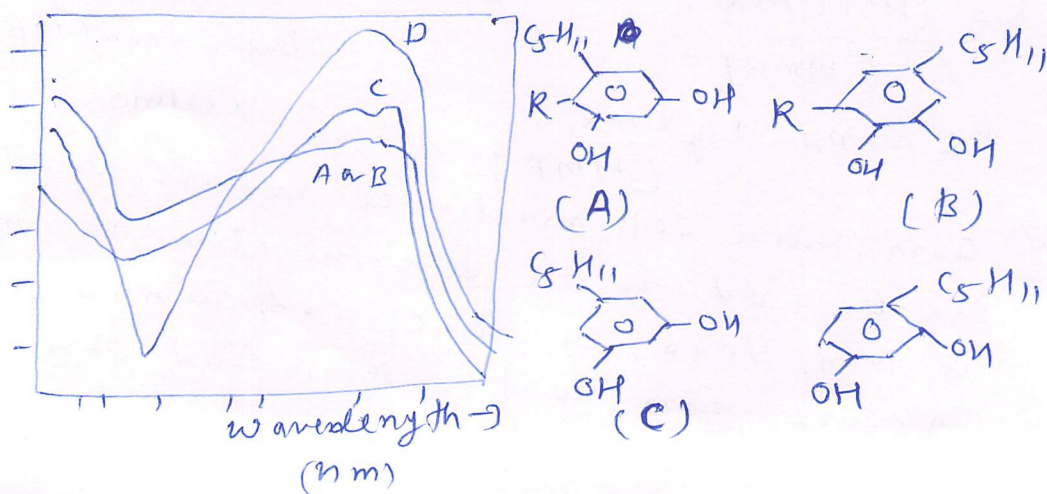 D
C
A or B
Wavelength →
(nm)
C5H11
R
OH
OH
(A)
C5H11
R
OH
OH
(B)
C5H11
OH
OH
(C)
C5H11
OH
OH